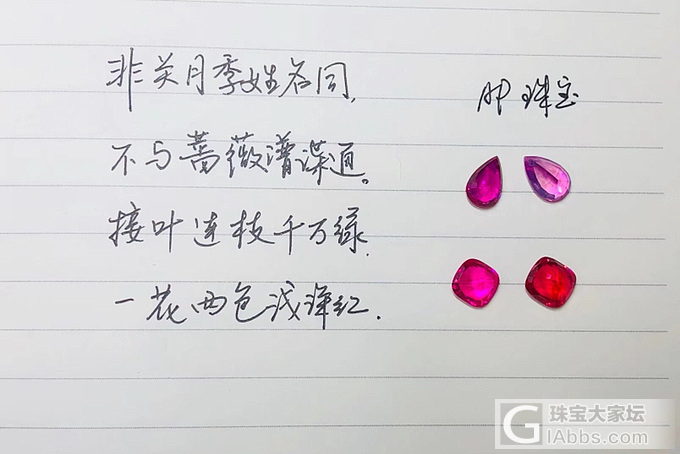 非关月季姓名同,
不与蔷薇谱谍通。
接叶连枝千万绿.
一花两色浅深红.
AP 珠宝
G 珠宝大家坛
lAbbs.com